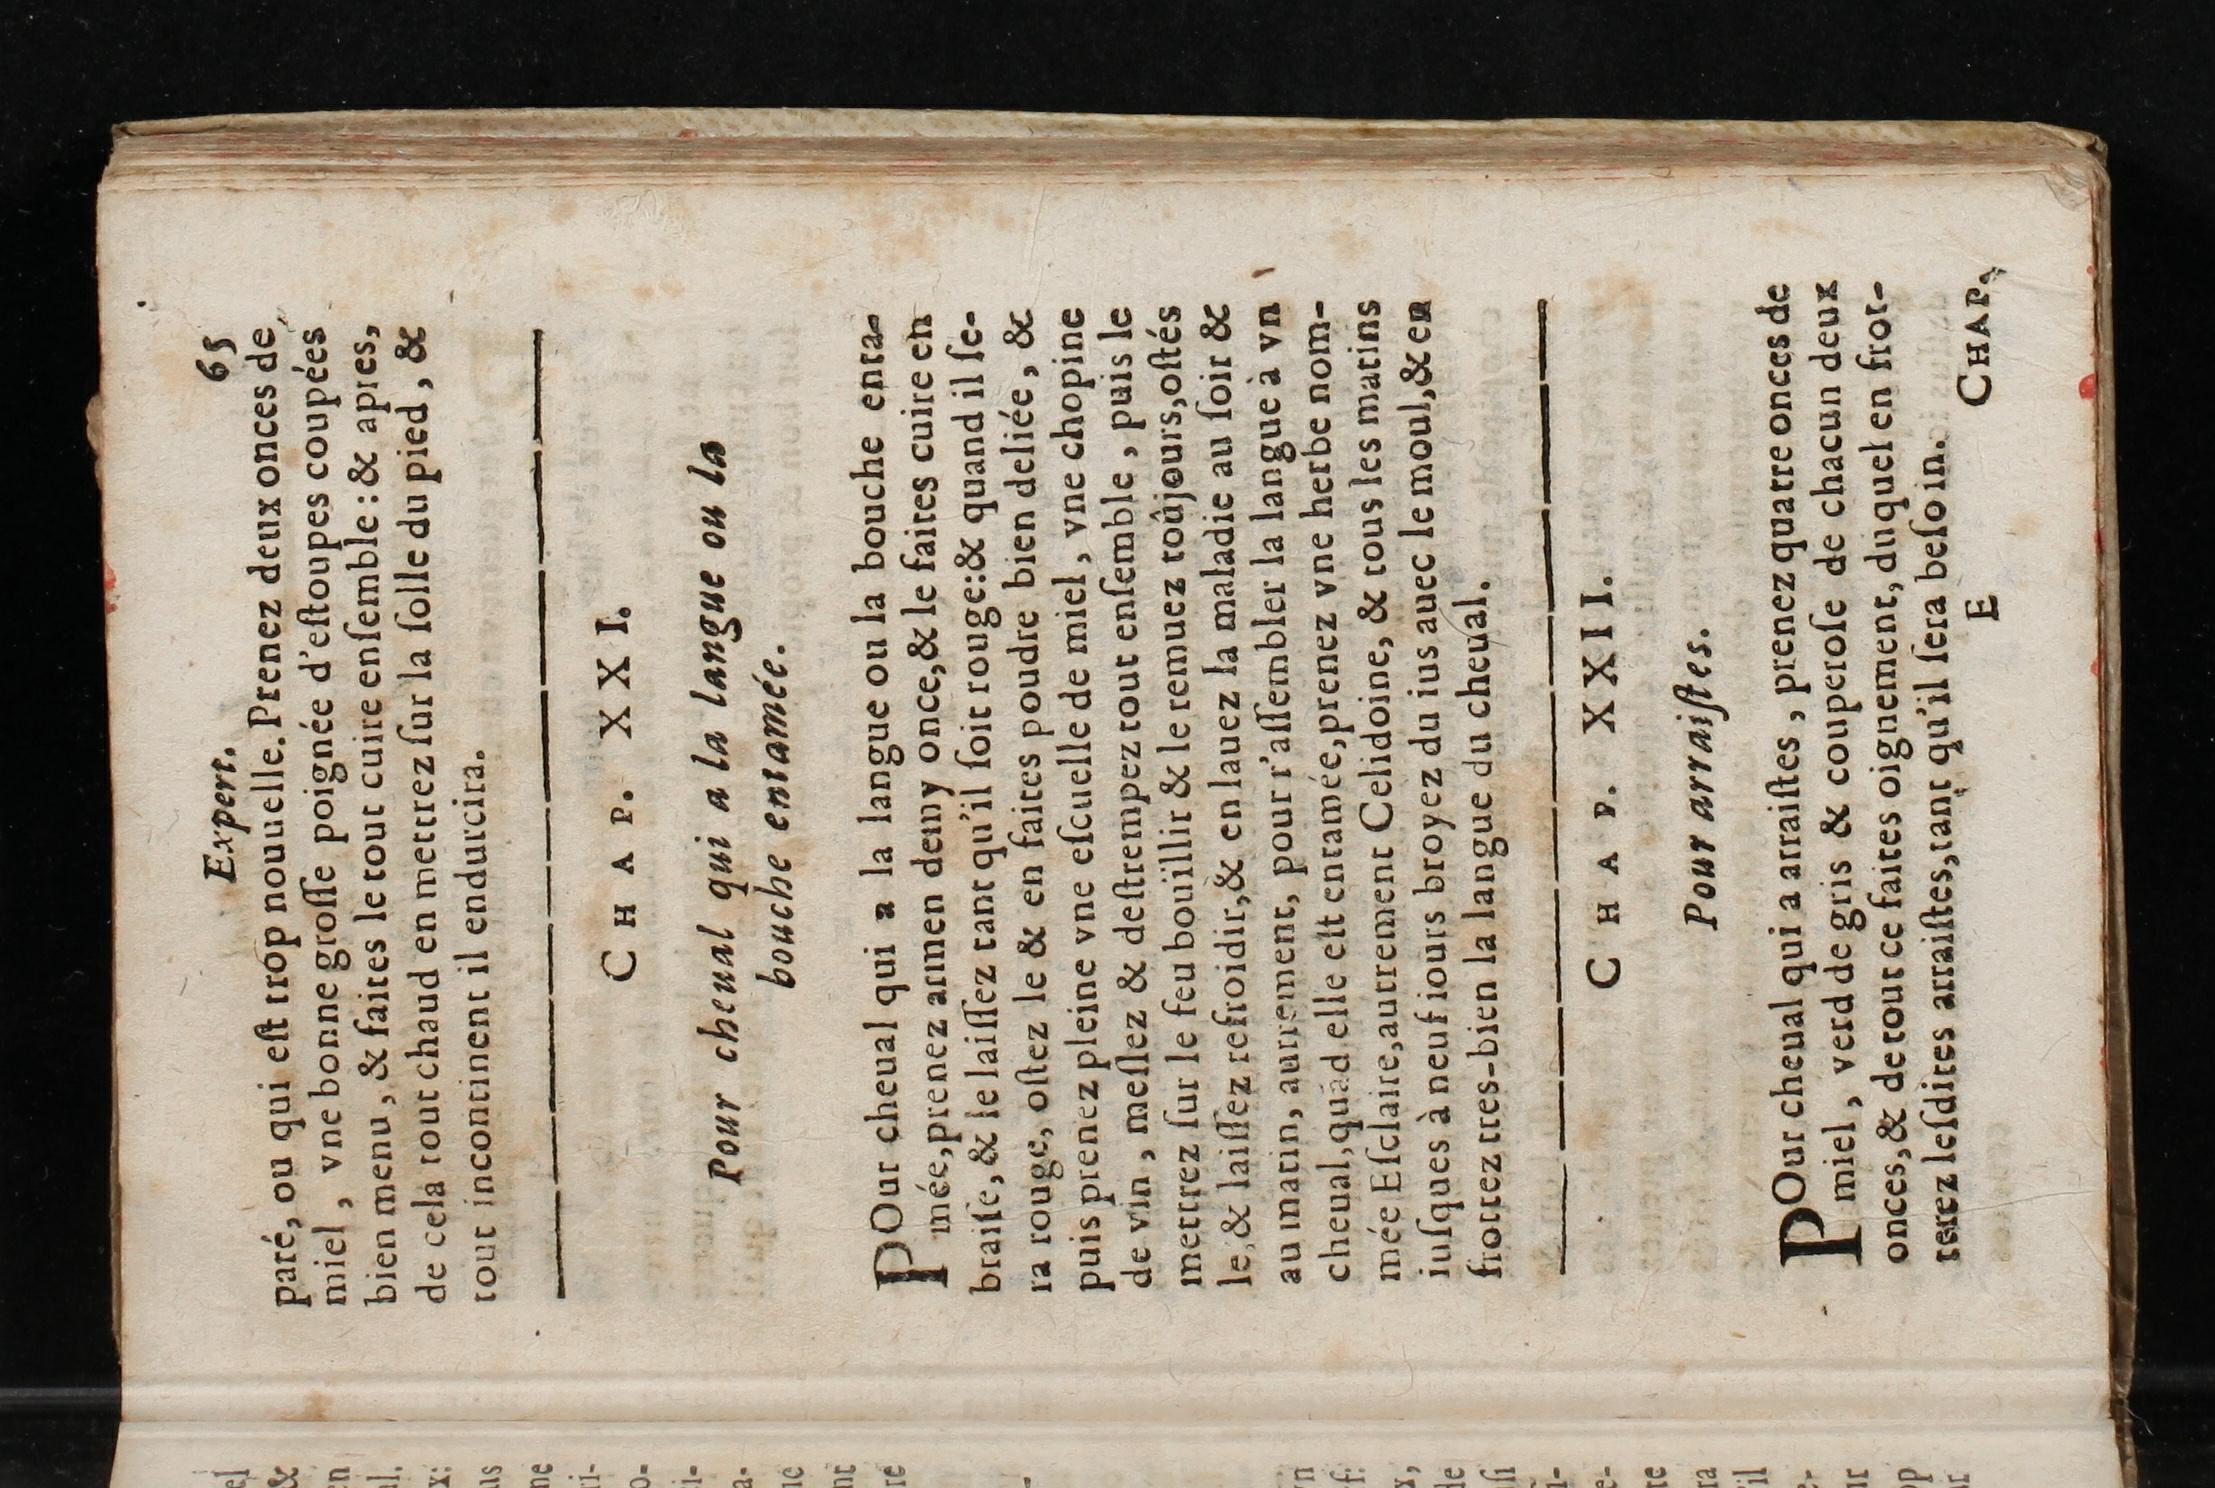 Expert. 65
paré, ou qui eſt trop nouuelle. Prenez deux onces de
miel, vne bonne groſſe poignée d'eſtoupes coupées
bien menu, & faites le tout cuire enſemble: & apres,
de cela tout chaud en mettrez ſur la ſolle du pied, &
tout incontinent il endurcira.
CHAP. XXI.
Pour cheual qui a la langue ou la
bouche entamée.
POur cheual qui a la langue ou la bouche enta-
mée, prenez armen demy once, & le faites cuire en
braiſe, & le laiſſez tant qu'il ſoit rouge: & quand il ſe-
ra rouge, oſtez le & en faites poudre bien deliée, &
puis prenez pleine vne eſcuelle de miel, vne chopine
de vin, meſlez & deſtrempez tout enſemble, puis le
mettrez ſur le feu boüillir & le remuez toûjours, oſtés
le, & laiſſez refroidir, & en lauez la maladie au ſoir &
au matin, autrement, pour r'aſſembler la langue à vn
cheual, quãd elle eſt entamée, prenez vne herbe nom-
mée Eſclaire, autrement Celidoine, & tous les matins
iuſques à neuf iours broyez du ius auec le moul, & en
frottez tres-bien la langue du cheual.
CHAP. XXII.
Pour arraiſtes.
POur cheual qui a arraiſtes, prenez quatre onces de
miel, verd de gris & couperoſe de chacun deux
onces, & de tout ce faites oignement, duquel en frot-
terez leſdites arraiſtes, tant qu'il ſera beſoin.
E CHAP.